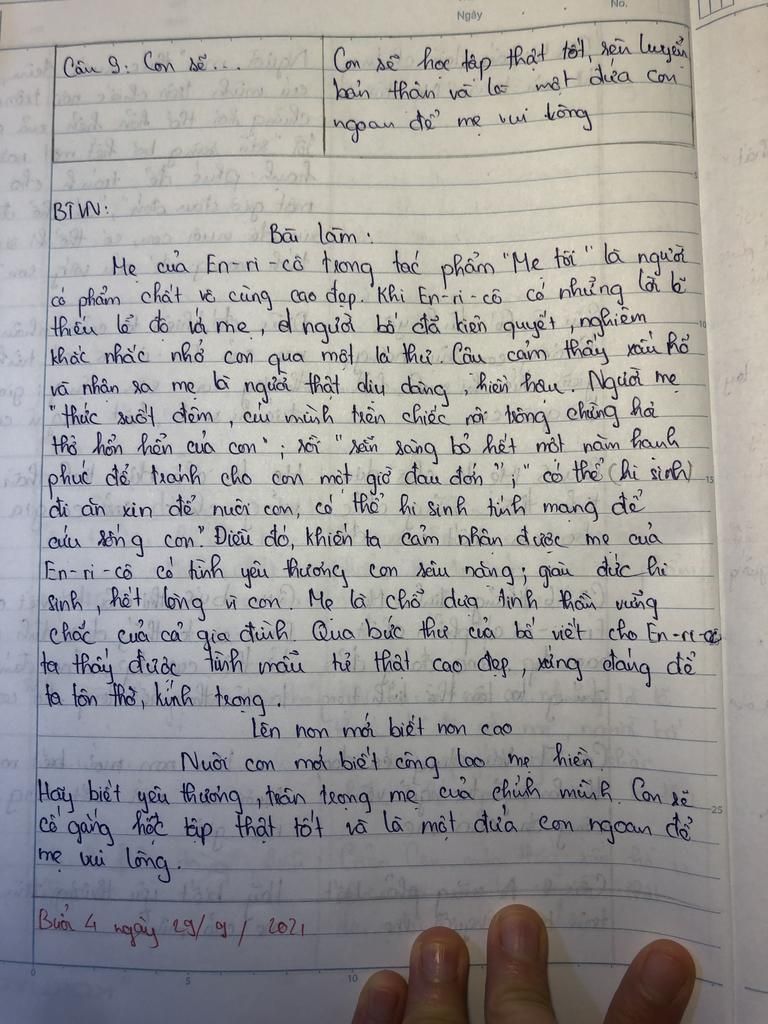 Ngày
No.
Câu 9: Con sẽ...
Con sẽ học tập thật tốt, rèn luyện
bản thân và là một đứa con
ngoan để mẹ vui lòng
BTVN:
Bài làm:
Mẹ của En-ri-cô trong tác phẩm "Mẹ tôi" là người
có phẩm chất vô cùng cao đẹp. Khi En-ri-cô có những lời lẽ
thiếu lễ độ với mẹ, người bố đã kiên quyết, nghiêm
khắc nhắc nhở con qua một lá thư. Cậu cảm thấy xấu hổ
và nhận ra mẹ là người thật dịu dàng, hiền hậu. Người mẹ
"thức suốt đêm, cúi mình trên chiếc nôi trông chừng hơi
thở hổn hển của con"; rồi "sẵn sàng bỏ hết một năm hạnh
phúc để tránh cho con một giờ đau đớn"; "có thể (hi sinh)
đi ăn xin để nuôi con, có thể hi sinh tính mạng để
cứu sống con." Điều đó, khiến ta cảm nhận được mẹ của
En-ri-cô có tình yêu thương con sâu nặng; giàu đức hi
sinh, hết lòng vì con. Mẹ là chỗ dựa tinh thần vững
chắc của cả gia đình. Qua bức thư của bố viết cho En-ri-cô
ta thấy được tình mẫu tử thật cao đẹp, xứng đáng để
ta tôn thờ, kính trọng.
Lên non mới biết non cao
Nuôi con mới biết công lao mẹ hiền.
Hãy biết yêu thương, trân trọng mẹ của chính mình. Con sẽ
cố gắng học tập thật tốt và là một đứa con ngoan để
mẹ vui lòng.
Buổi 4 ngày 29/9/2021
5
10
10
15
25